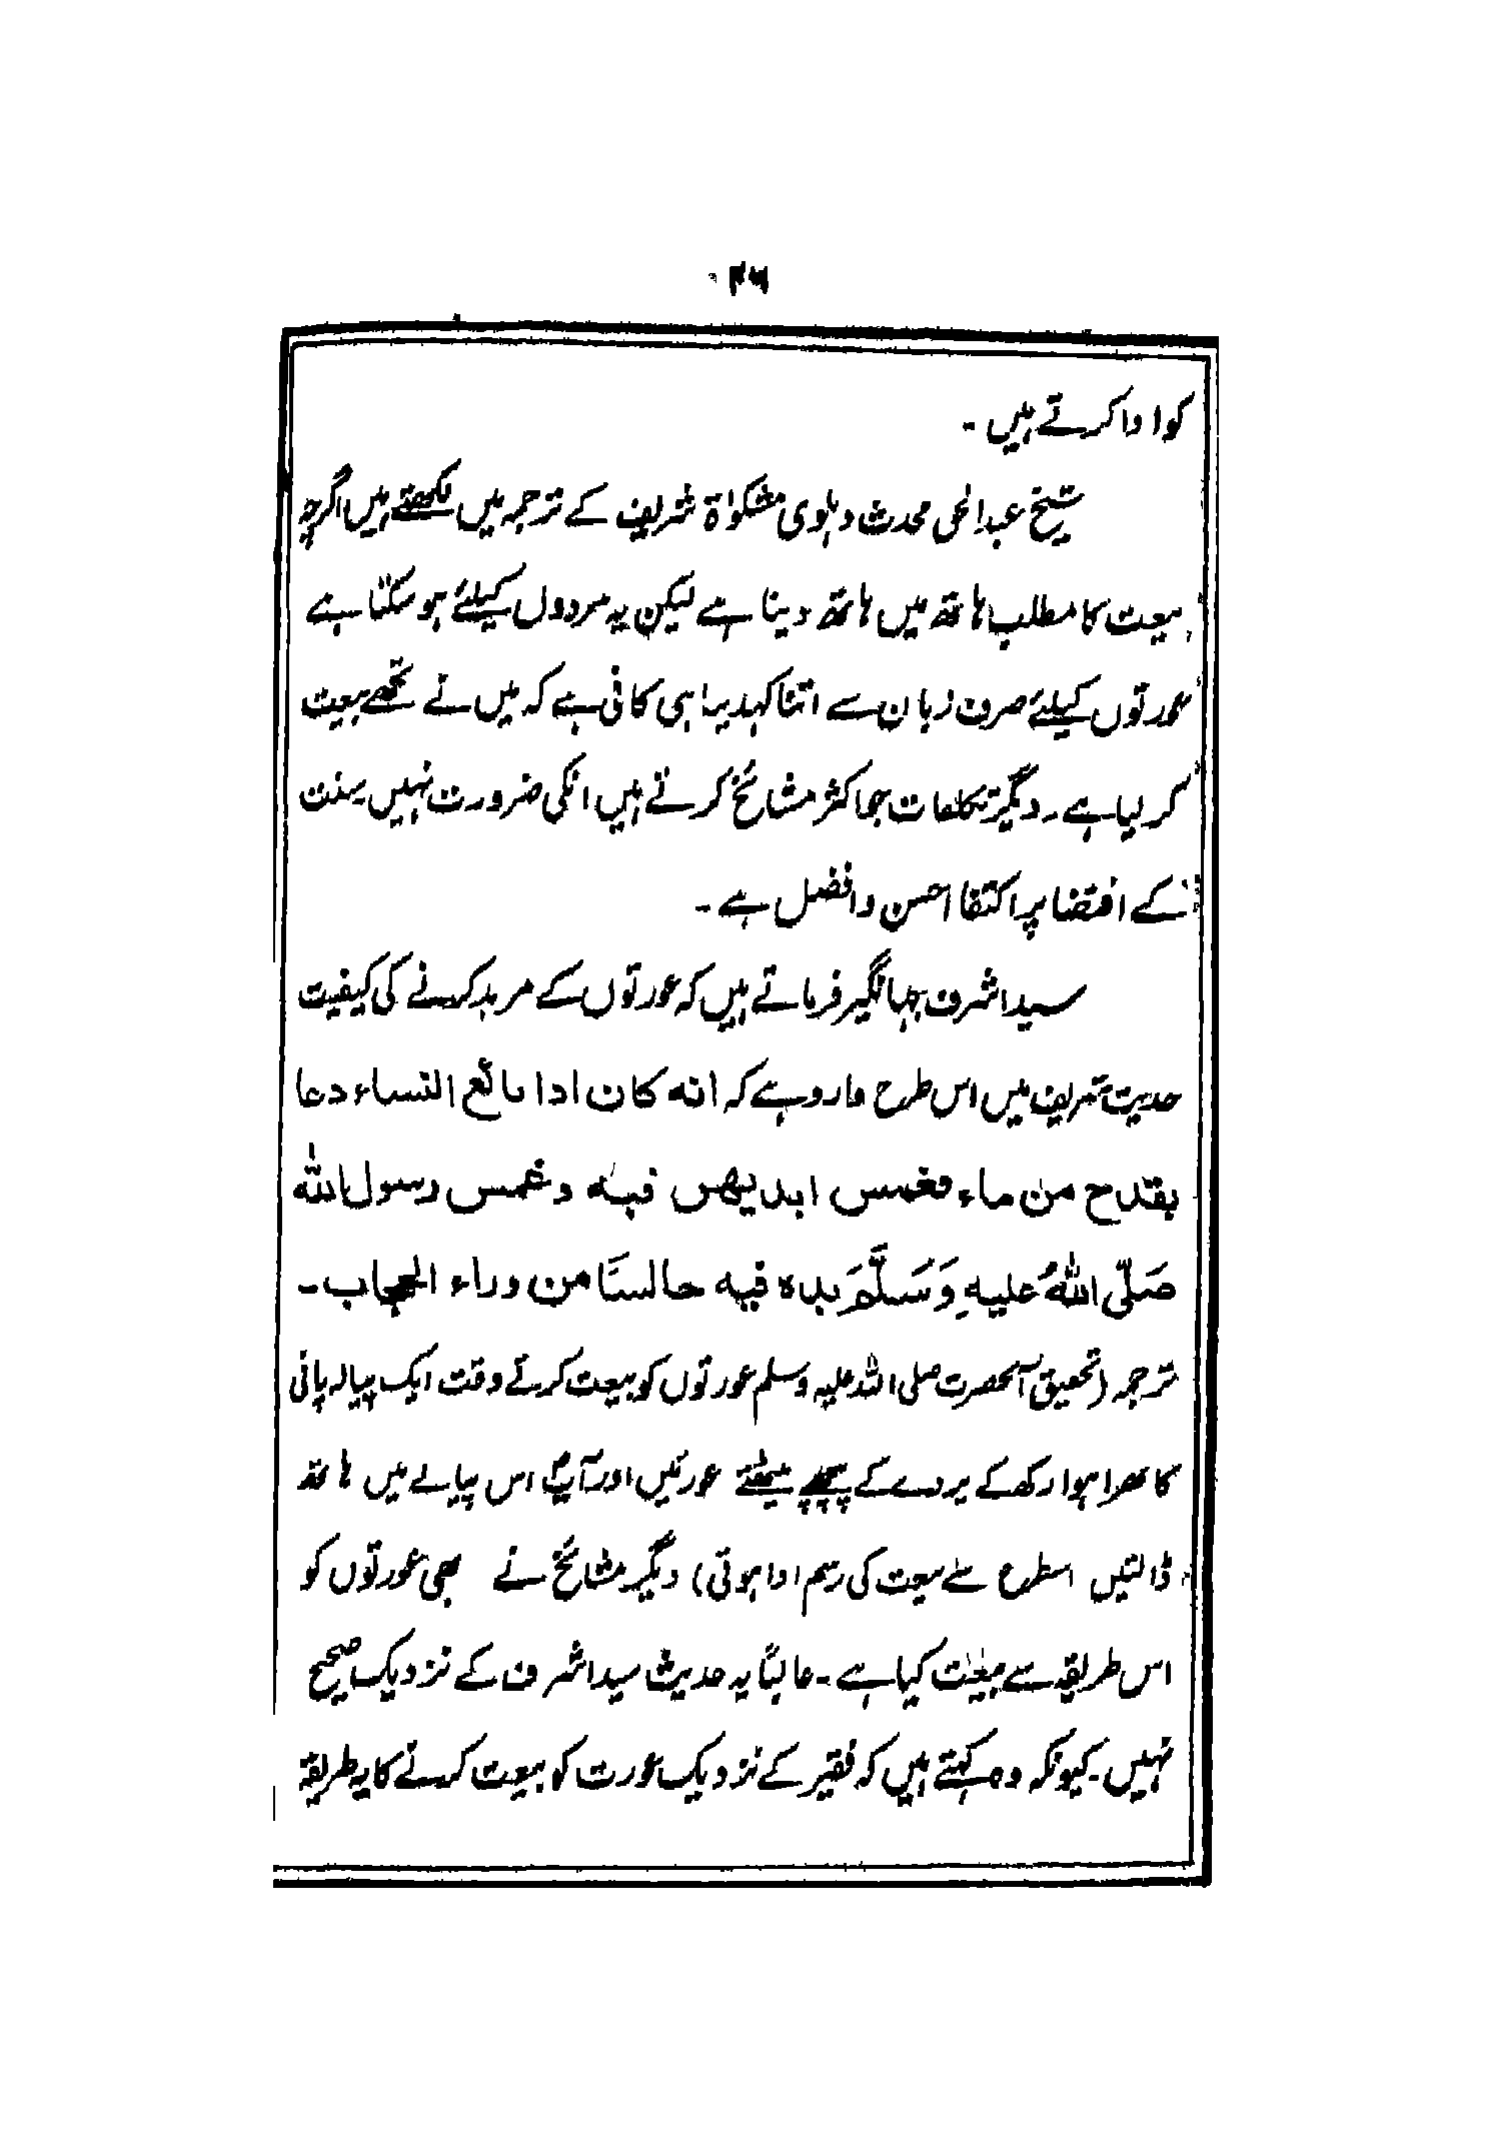 ۴۶
کو ادا کرتے ہیں ۔
شیخ عبدالحق محدث دہلوی مشکوٰۃ شریف کے ترجمہ میں لکھتے ہیں اگرچہ
بیعت کا مطلب ہاتھ میں ہاتھ دینا ہے لیکن یہ مردوں کیلئے ہو سکتا ہے
عورتوں کیلئے صرف زبان سے اتنا کہدینا ہی کافی ہے کہ میں نے تجھے بیعت
کر لیا ہے ۔ دیگر تکلفات جو اکثر مشائخ کرتے ہیں انکی ضرورت نہیں سنت
کے اقتضا پر اکتفا احسن و افضل ہے ۔
سید اشرف جہانگیر فرماتے ہیں کہ عورتوں کے مرید کرنے کی کیفیت
حدیث شریف میں اس طرح وارد ہے کہ انه کان اذا بائع النساء دعا
بقدح من ماء فغمس ایدیهن فیه و غمس رسول الله
صَلّی اللهُ علیهِ وَسَلَّمَ یده فیه جالسًا من وراء الحجاب ۔
ترجمہ (تحقیق آنحضرت صلی اللہ علیہ وسلم عورتوں کو بیعت کرتے وقت ایک پیالہ پانی
کا بھرا ہوا رکھ کے پردے کے پیچھے بیٹھتے عورتیں اور آپؐ اس پیالے میں ہاتھ
ڈالتیں اسطرح سے بیعت کی رسم ادا ہوتی) دیگر مشائخ نے بھی عورتوں کو
اس طریقہ سے بیعت کیا ہے ۔ غالباً یہ حدیث سید اشرف کے نزدیک صحیح
نہیں ۔ کیونکہ وہ کہتے ہیں کہ فقیر کے نزدیک عورت کو بیعت کرنے کا یہ طریقہ